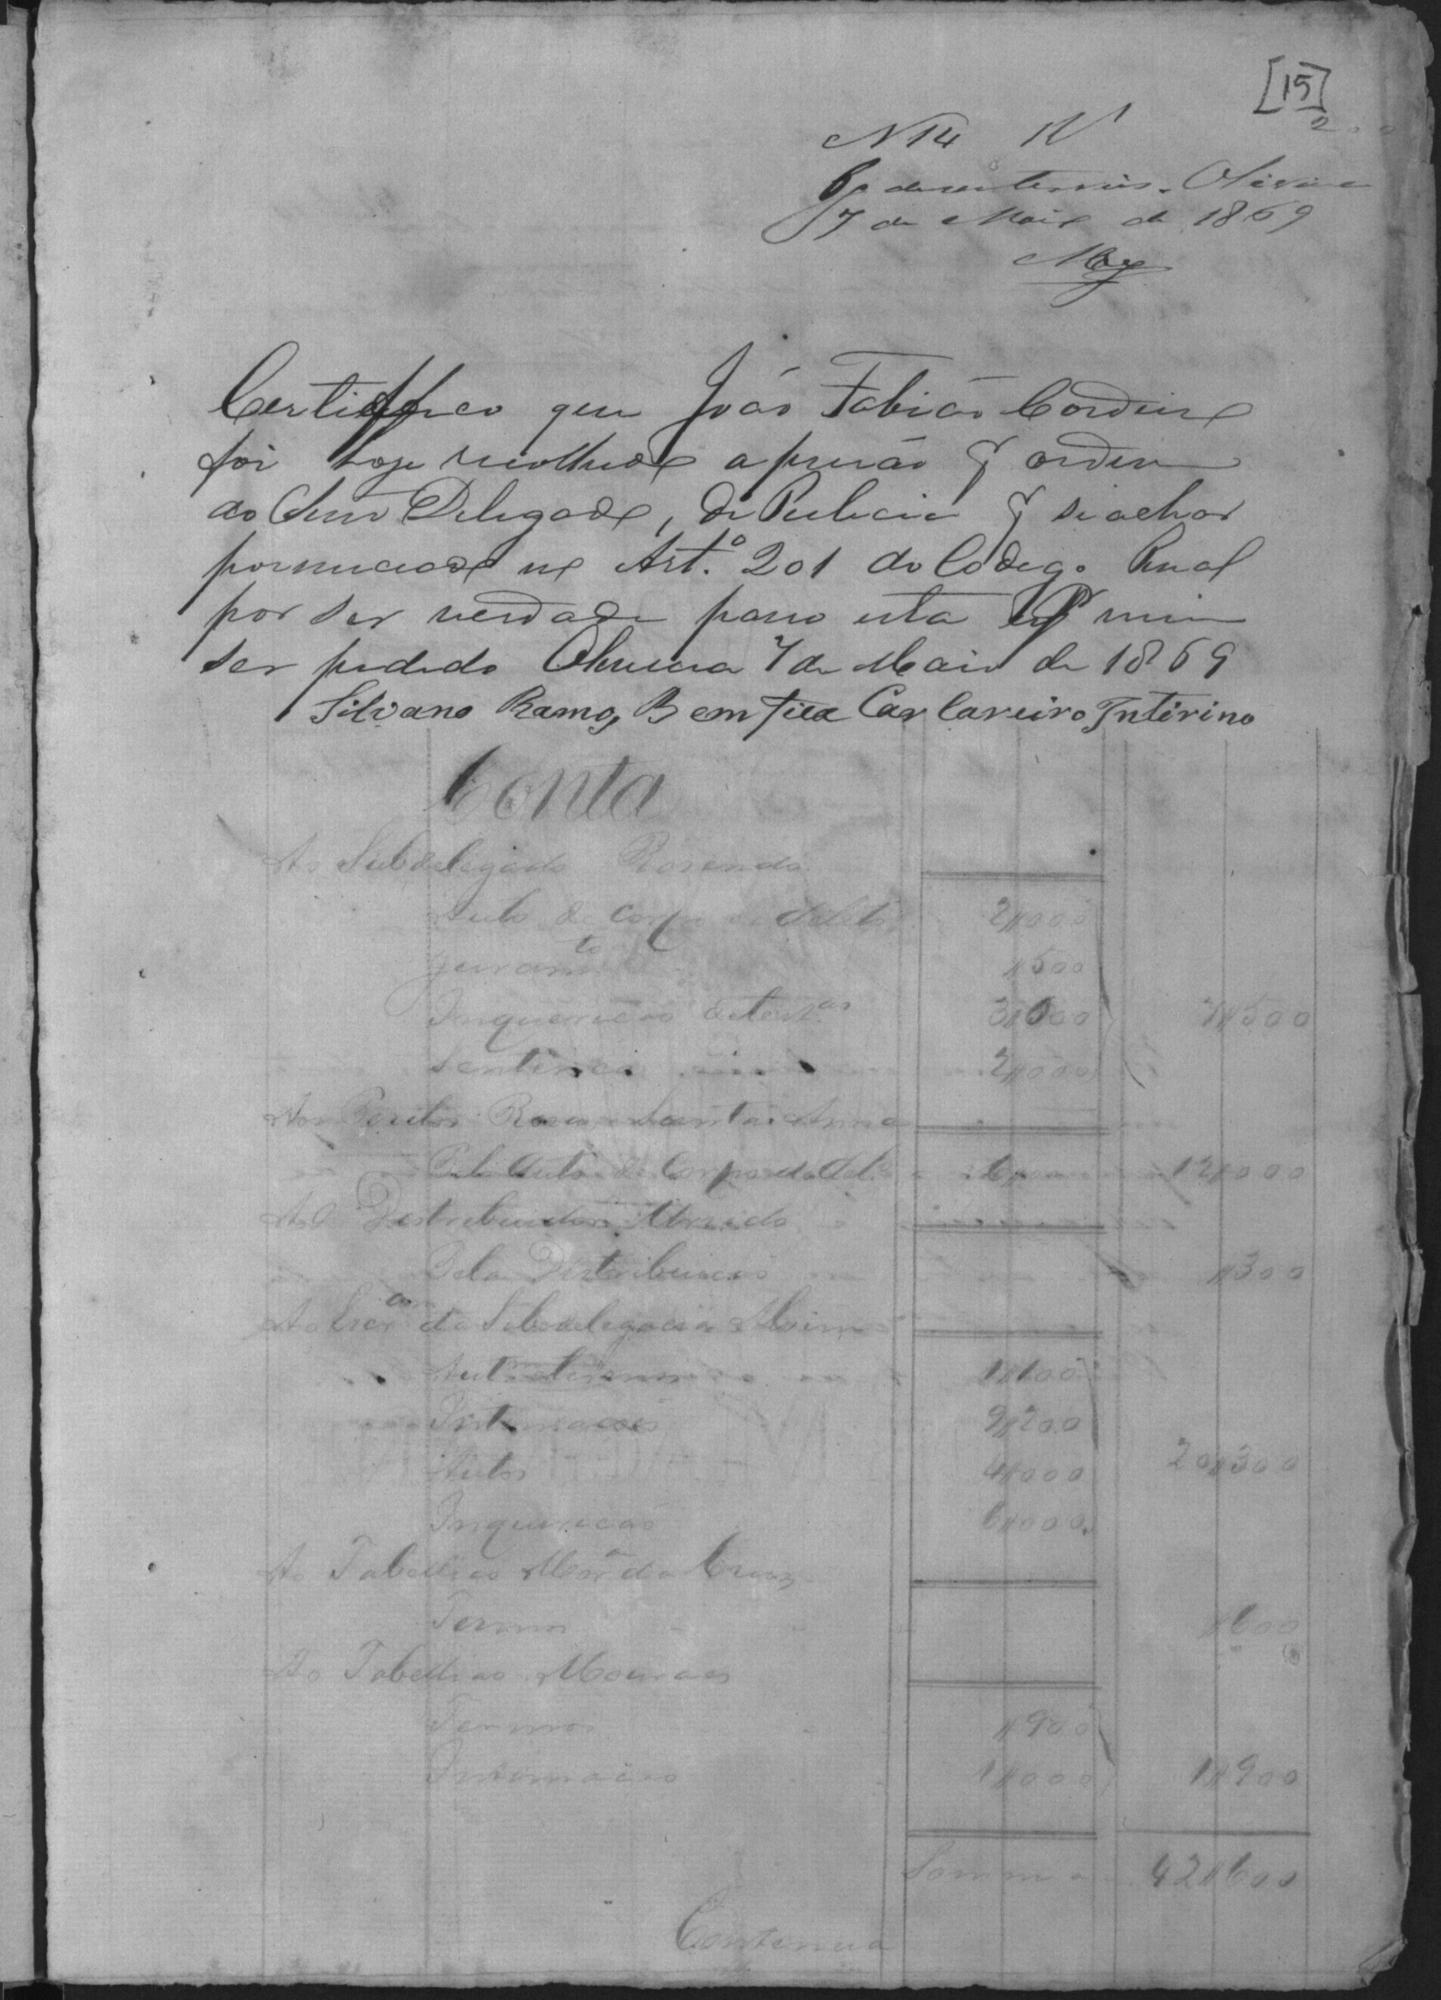 [15]
2
N 14 N
de 
7 de Maio de 1869
Certiffico que João Fabião Cordeiro
foi hoje recolhido a prisão p ordem
do Senr Delegado, de Pulicia p si achar
pornunciado no Art.º 201 do Codego Penal
por ser verdade passo esta p mim
ser pedido Oliveira 7 de Maio de 1869
Silvano Ramos Bemfica Carlareiro Intirino
Conta
Ao Subdelegado Rosendo
Auto de corpo de delito 2#000
Juramto #500
Inquerição de testas 3#000 7#500
Sentença 2#000
Aos Peritos Rosa e Santa Anna
Pelo Auto de Corpo de Delo 6#000 12#000
Ao Destribuidor
Pela Destribuição #300
Ao Escram da Subdelegacia
1#100
Intimações 9#200
Autos 4#000 20#300
Inquirição 6#000
Ao Tabellião Mor da Cruz
Termos #600
Ao Tabellião Mouraes
Termos #900
Intimação 1#000 1#900
Somma 42#600